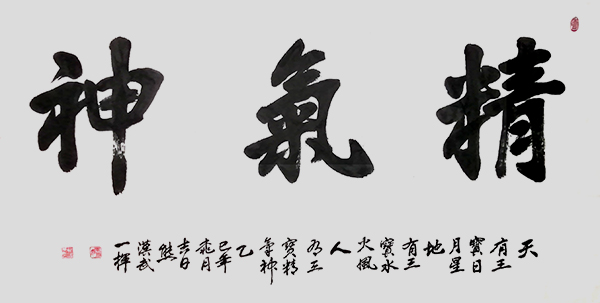 精氣神
天
有三
寶日
月星
地
有三
寶水
火風
人
有三
寶精
氣神
乙
巳年
月
吉日
熊
漢武
一揮